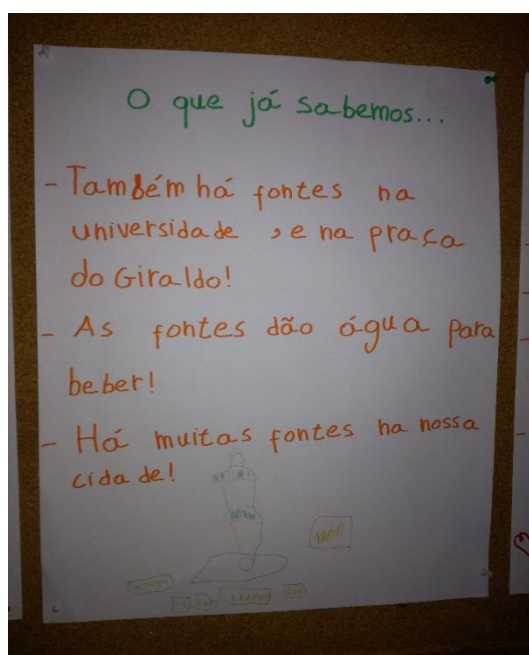 O que já sabemos...
- Também há fontes na
universidade , e na praça
do Giraldo!
- As fontes dão água para
beber!
- Há muitas fontes na nossa
cidade!